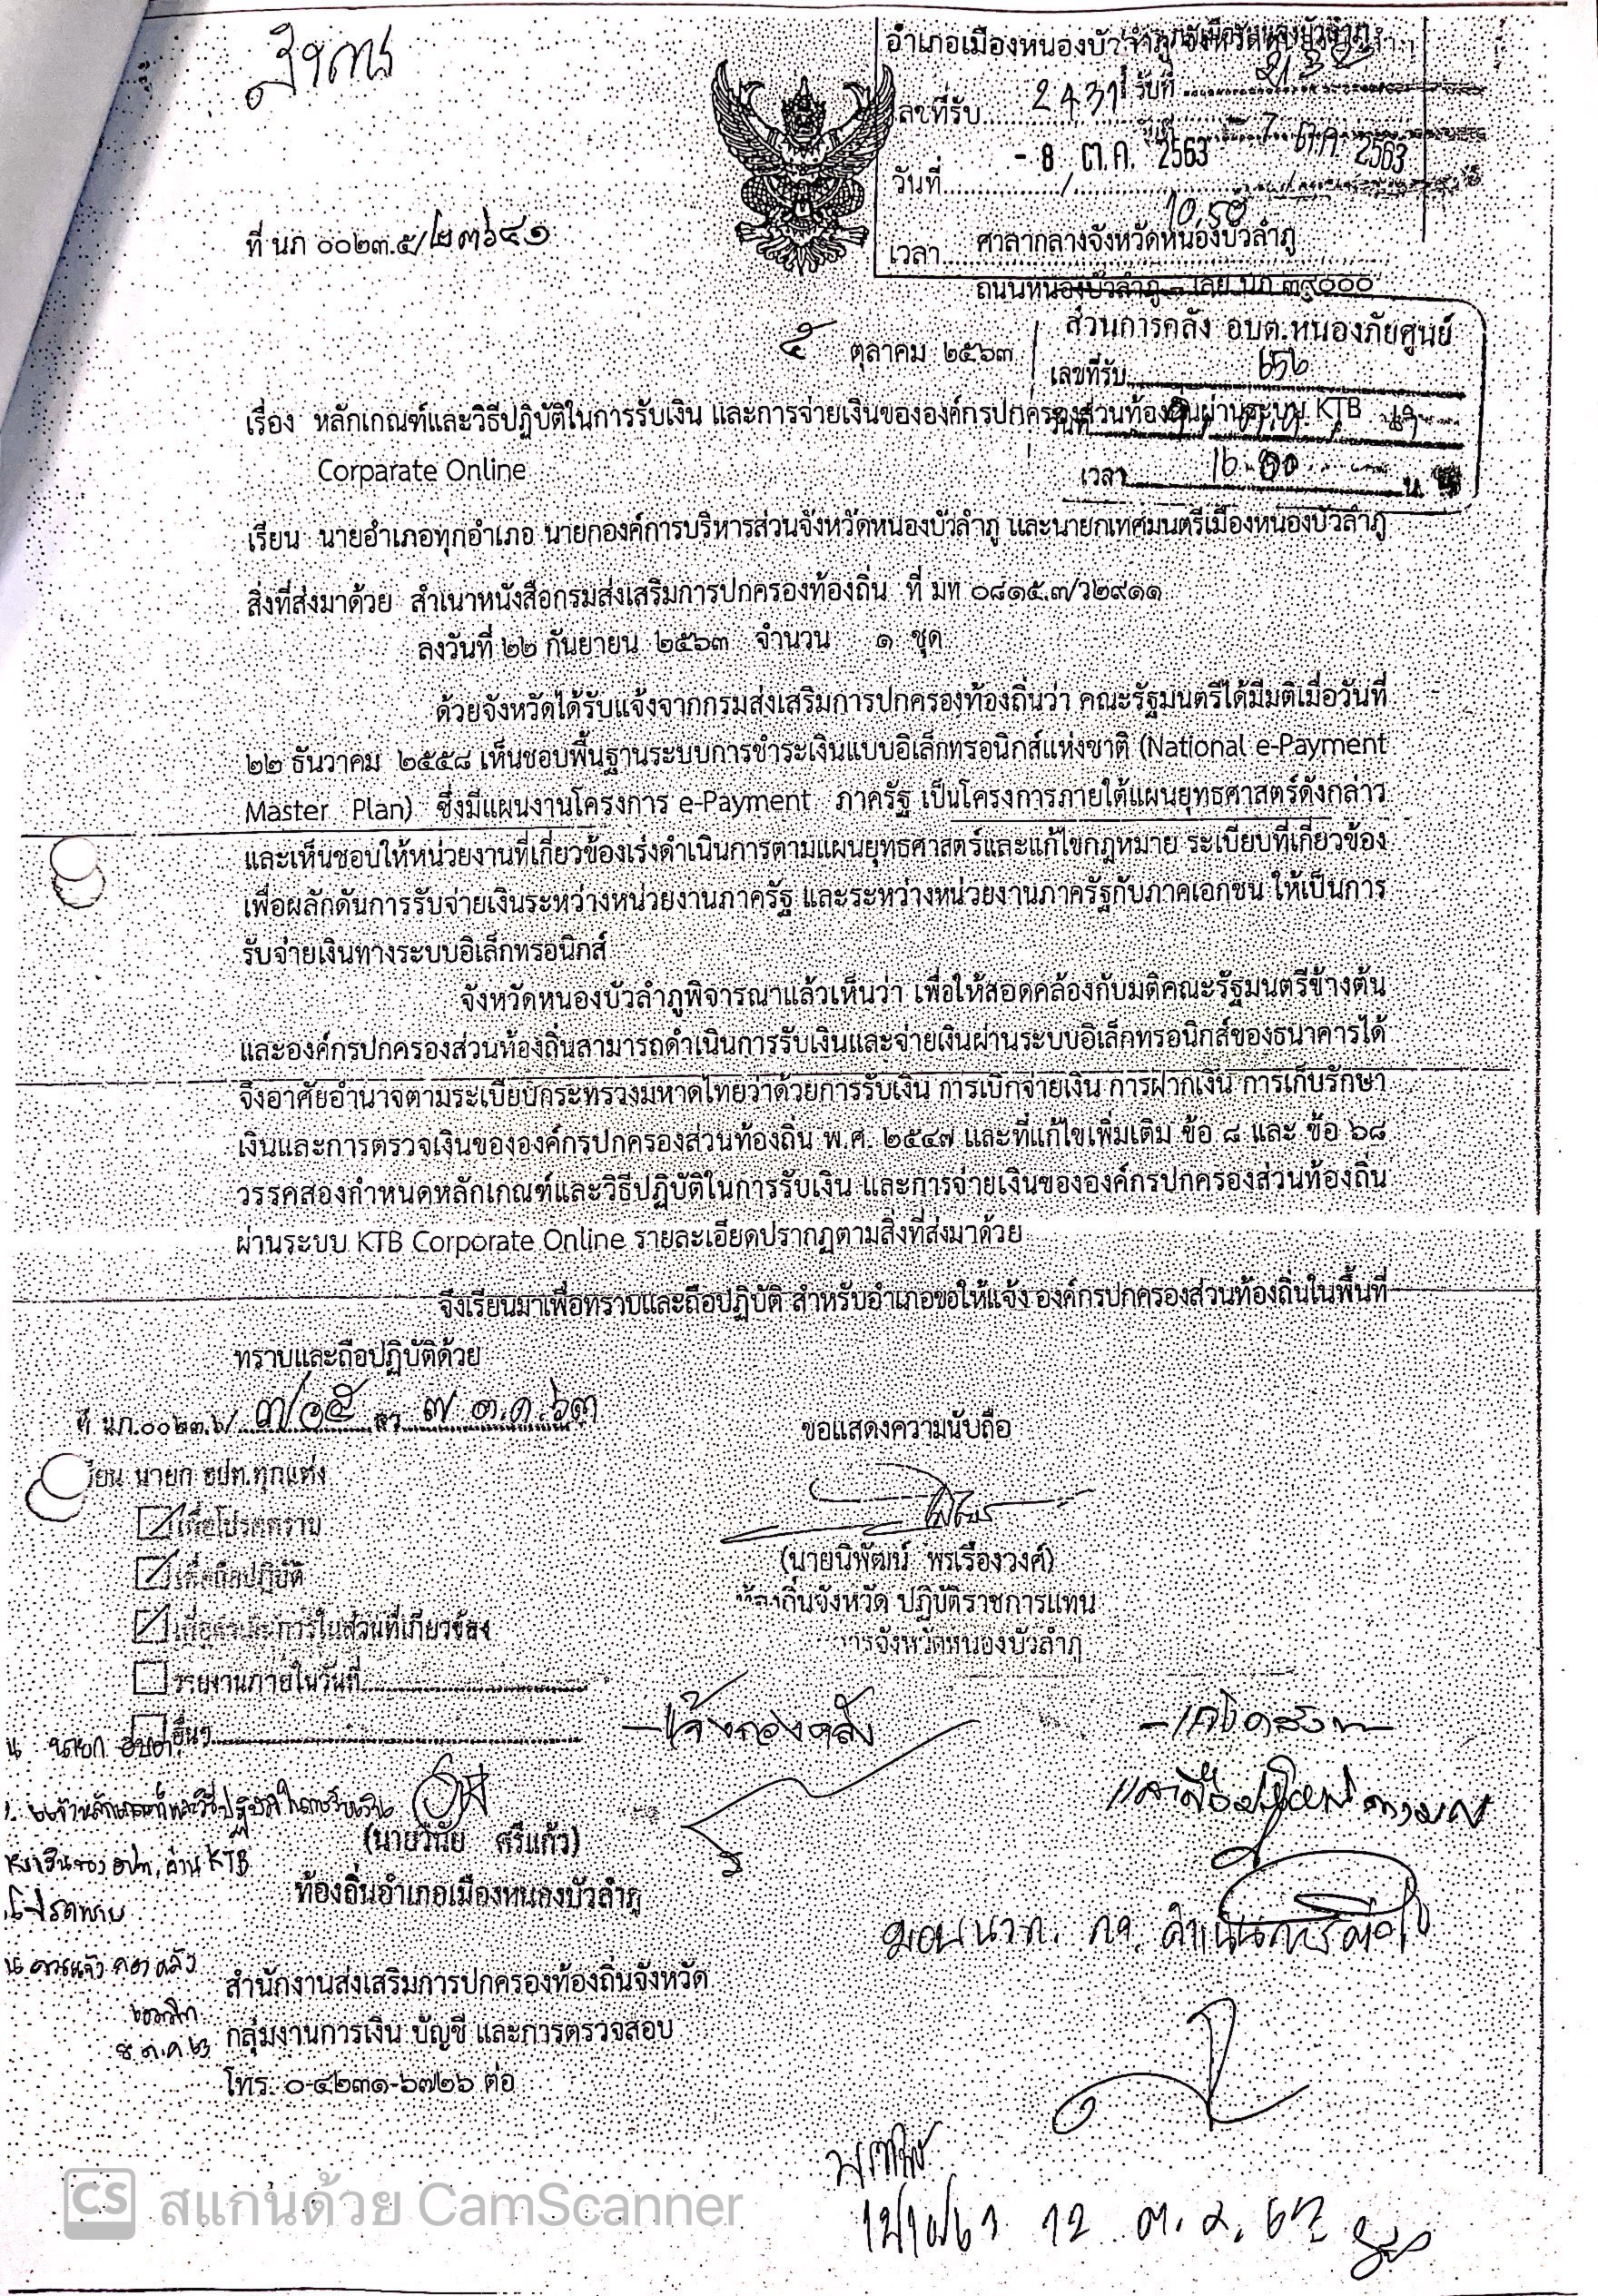 อำเภอเมืองหนองบัวลำภู จังหวัดหนองบัวลำภู
เลขที่รับ 2431 รับที่
วันที่ - 8 ต.ค. 2563
7 ต.ค. 2563
เวลา 10.50
ที่ นภ ๐๐๒๓.๕/๒๓๖๔๑
ศาลากลางจังหวัดหนองบัวลำภู
ถนนหนองบัวลำภู - เลย นภ ๓๙๐๐๐
๕ ตุลาคม ๒๕๖๓
ส่วนการคลัง อบต.หนองภัยศูนย์
เลขที่รับ 656
วันที่
เวลา 16.00 น.
เรื่อง หลักเกณฑ์และวิธีปฏิบัติในการรับเงิน และการจ่ายเงินขององค์กรปกครองส่วนท้องถิ่นผ่านระบบ KTB
Corparate Online
เรียน นายอำเภอทุกอำเภอ นายกองค์การบริหารส่วนจังหวัดหนองบัวลำภู และนายกเทศมนตรีเมืองหนองบัวลำภู
สิ่งที่ส่งมาด้วย สำเนาหนังสือกรมส่งเสริมการปกครองท้องถิ่น ที่ มท ๐๘๑๕.๓/ว๒๙๑๑
ลงวันที่ ๒๒ กันยายน ๒๕๖๓ จำนวน ๑ ชุด
ด้วยจังหวัดได้รับแจ้งจากกรมส่งเสริมการปกครองท้องถิ่นว่า คณะรัฐมนตรีได้มีมติเมื่อวันที่
๒๒ ธันวาคม ๒๕๕๘ เห็นชอบพื้นฐานระบบการชำระเงินแบบอิเล็กทรอนิกส์แห่งชาติ (National e-Payment
Master Plan) ซึ่งมีแผนงานโครงการ e-Payment ภาครัฐ เป็นโครงการภายใต้แผนยุทธศาสตร์ดังกล่าว
และเห็นชอบให้หน่วยงานที่เกี่ยวข้องเร่งดำเนินการตามแผนยุทธศาสตร์และแก้ไขกฎหมาย ระเบียบที่เกี่ยวข้อง
เพื่อผลักดันการรับจ่ายเงินระหว่างหน่วยงานภาครัฐ และระหว่างหน่วยงานภาครัฐกับภาคเอกชน ให้เป็นการ
รับจ่ายเงินทางระบบอิเล็กทรอนิกส์
จังหวัดหนองบัวลำภูพิจารณาแล้วเห็นว่า เพื่อให้สอดคล้องกับมติคณะรัฐมนตรีข้างต้น
และองค์กรปกครองส่วนท้องถิ่นสามารถดำเนินการรับเงินและจ่ายเงินผ่านระบบอิเล็กทรอนิกส์ของธนาคารได้
จึงอาศัยอำนาจตามระเบียบกระทรวงมหาดไทยว่าด้วยการรับเงิน การเบิกจ่ายเงิน การฝากเงิน การเก็บรักษา
เงินและการตรวจเงินขององค์กรปกครองส่วนท้องถิ่น พ.ศ. ๒๕๔๗ และที่แก้ไขเพิ่มเติม ข้อ ๘ และ ข้อ ๖๘
วรรคสองกำหนดหลักเกณฑ์และวิธีปฏิบัติในการรับเงิน และการจ่ายเงินขององค์กรปกครองส่วนท้องถิ่น
ผ่านระบบ KTB Corporate Online รายละเอียดปรากฏตามสิ่งที่ส่งมาด้วย
จึงเรียนมาเพื่อทราบและถือปฏิบัติ สำหรับอำเภอขอให้แจ้ง องค์กรปกครองส่วนท้องถิ่นในพื้นที่
ทราบและถือปฏิบัติด้วย
ที่ นภ.๐๐๒๓.๖/ ๗๑๕ ลว ๗ ต.ค. ๖๓
ขอแสดงความนับถือ
เรียน นายก อปท.ทุกแห่ง
เพื่อโปรดทราบ
เพื่อถือปฏิบัติ
(นายนิพัฒน์ พรเรืองวงศ์)
ท้องถิ่นจังหวัด ปฏิบัติราชการแทน
เพื่อดำเนินการในส่วนที่เกี่ยวข้อง
การจังหวัดหนองบัวลำภู
รายงานภายในวันที่
อื่นๆ
- แจ้งกองคลัง
นายก อบต.
ผ่าน KTB
(นายวินัย ศรีแก้ว)
ท้องถิ่นอำเภอเมืองหนองบัวลำภู
มอบ นวก. กง. ดำเนินการต่อไป
สำนักงานส่งเสริมการปกครองท้องถิ่นจังหวัด
กลุ่มงานการเงิน บัญชี และการตรวจสอบ
8 ต.ค 63
โทร. ๐-๔๒๓๑-๖๗๒๖ ต่อ
CS สแกนด้วย CamScanner
12 ต.ค. 63